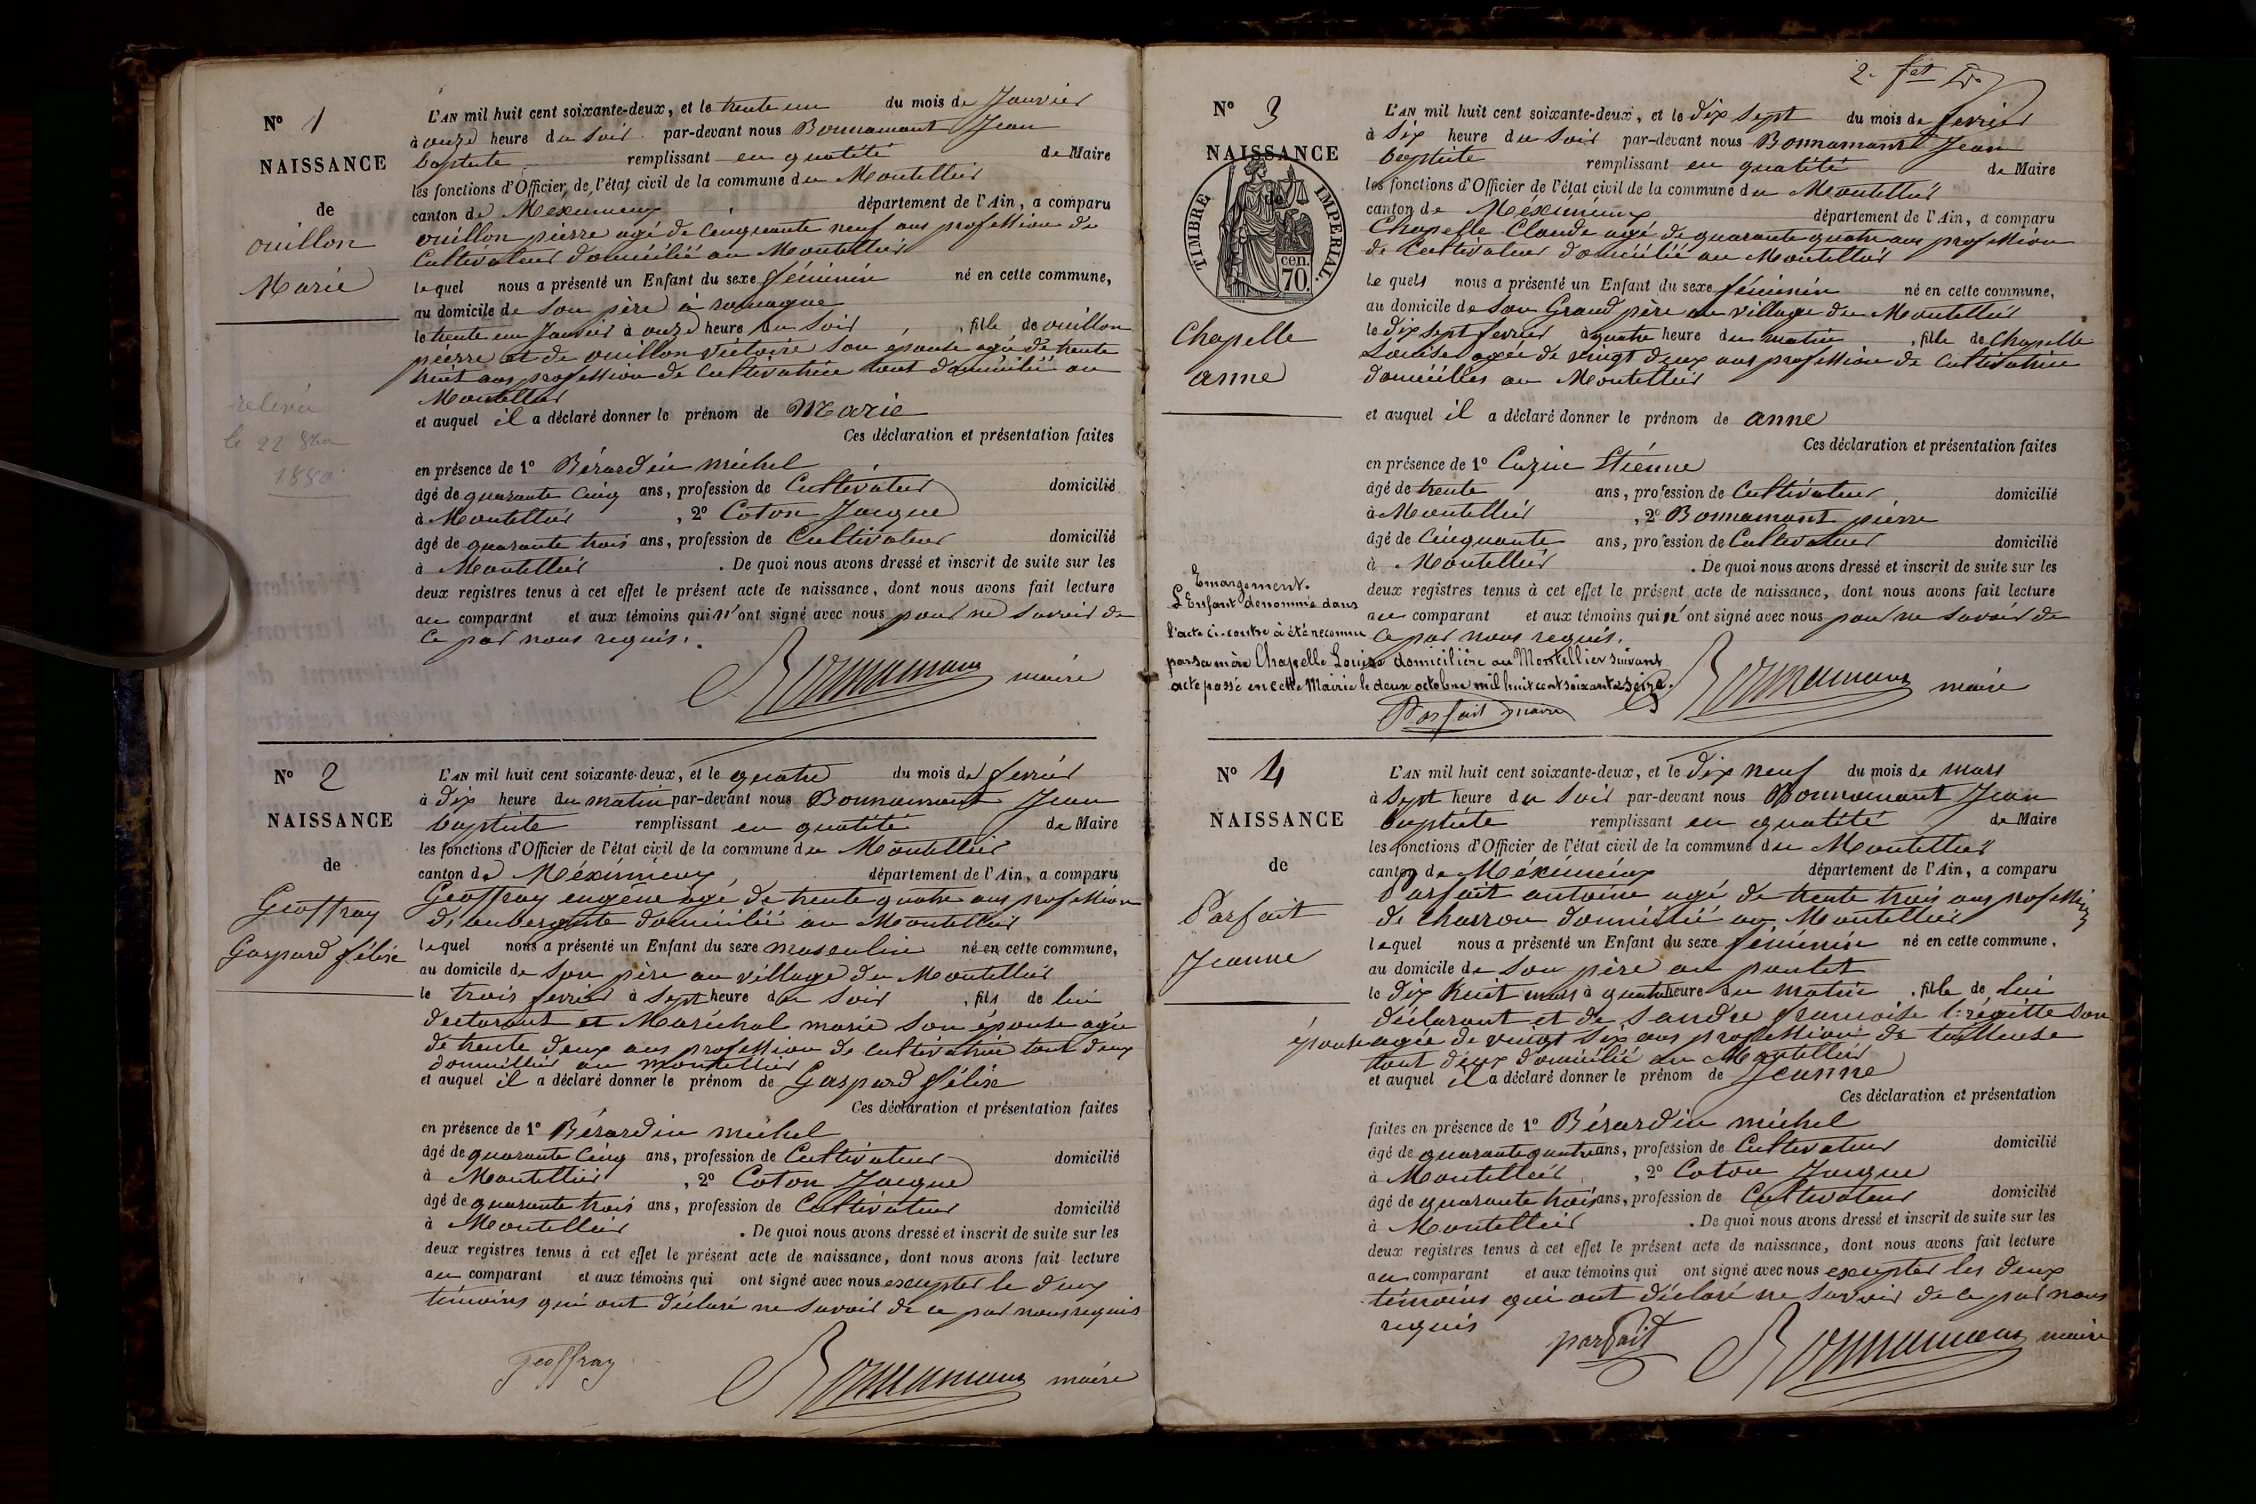 N° 1
NAISSANCE
de
ouillon
Marie
relevé
le 22
1880
L'AN mil huit cent soixante-deux, et le trente un du mois de Janvier
à onze heure du Soir par-devant nous Bonnamant Jean
baptiste remplissant en qualité de Maire
les fonctions d'Officier de l'état civil de la commune du Montellier
canton de Meximieux, département de l'Ain, a comparu
ouillon pierre agé de Cinquante neuf ans profession de
Cultivateur domicilié au Montellier
lequel nous a présenté un Enfant du sexe féminin né en cette commune,
au domicile de Son père à romagne
le trente un Janvier à onze heure du Soir, fille de ouillon
pierre et de ouillon victoire Son epouse agé de trente
huit ans profession de Cultivatrice tout domicilié au
Montellier
et auquel il a déclaré donner le prénom de Marie
Ces déclaration et présentation faites
en présence de 1° Bérardin michel
âgé de quarante Cinq ans, profession de Cultivateur domicilié
à Montellier, 2° Coton Jacque
âgé de quarante trois ans, profession de Cultivateur domicilié
à Montellier. De quoi nous avons dressé et inscrit de suite sur les
deux registres tenus à cet effet le présent acte de naissance, dont nous avons fait lecture
au comparant et aux témoins qui n'ont signé avec nous pour ne Savoir de
Ce par nous requis.
Bonnamant maire
N° 2
NAISSANCE
de
Geoffray
Gaspard félix
L'AN mil huit cent soixante-deux, et le quatre du mois de fevrier
à dix heure du matin par-devant nous Bonnamant Jean
baptiste remplissant en qualité de Maire
les fonctions d'Officier de l'état civil de la commune du Montellier
canton de Méximieux, département de l'Ain, a comparu
Geoffray eugéne agé de trente quatre ans profession
d'aubergiste domicilié au Montellier
lequel nous a présenté un Enfant du sexe masculin né en cette commune,
au domicile de Son père au village du Montellier
le trois fevrier à Sept heure du Soir, fils de lui
declarant et Maréchal marie Son épouse agée
de trente deux ans profession de cultivatrice tout deux
domicilié au montellier
et auquel il a déclaré donner le prénom de Gaspard félix
Ces déclaration et présentation faites
en présence de 1° Bérardin michel
âgé de quarante Cinq ans, profession de Cultivateur domicilié
à Montellier, 2° Coton Jacque
âgé de quarante trois ans, profession de Cultivateur domicilié
à Montellier. De quoi nous avons dressé et inscrit de suite sur les
deux registres tenus à cet effet le présent acte de naissance, dont nous avons fait lecture
au comparant et aux témoins qui ont signé avec nous excepter le deux
témoins qui ont déclaré ne Savoir de ce par nous requis
Geoffray
Bonnamant maire
2e fet
N° 3
NAISSANCE
de
TIMBRE IMPERIAL
70 cen.
Chapelle
anne
Emargement.
L'Enfant denommé dans
l'acte ci-contre à été reconnu
par sa mère Chapelle Louise domiciliée au Montellier suivant
acte passé en cette Mairie le deux octobre mil huit cent soixante seize.
Parfait maire
L'AN mil huit cent soixante-deux, et le dix sept du mois de fevrier
à Six heure du Soir par-devant nous Bonnamant Jean
baptiste remplissant en qualité de Maire
les fonctions d'Officier de l'état civil de la commune du Montellier
canton de Méximieux département de l'Ain, a comparu
Chapelle Claude agé de quarante quatre ans profession
de Cultivateur domicilié au Montellier
le quels nous a présenté un Enfant du sexe féminin né en cette commune,
au domicile de Son Grand père au village du Montellier
le dix sept fevrier à quatre heure du matin, fille de Chapelle
Louise agée de vingt deux ans profession de Cultivatrice
domicilies au Montellier
et auquel il a déclaré donner le prénom de anne
Ces déclaration et présentation faites
en présence de 1° Cuzin Etienne
âgé de trente ans, profession de Cultivateur domicilié
à Montellier, 2° Bonnamant pierre
âgé de Cinquante ans, profession de Cultivateur domicilié
à Montellier. De quoi nous avons dressé et inscrit de suite sur les
deux registres tenus à cet effet le présent acte de naissance, dont nous avons fait lecture
au comparant et aux témoins qui n'ont signé avec nous pour ne Savoir de
Ce par nous requis.
Bonnamant maire
N° 4
NAISSANCE
de
Parfait
Jeanne
L'AN mil huit cent soixante-deux, et le dix neuf du mois de mars
à Sept heure du Soir par-devant nous Bonnamant Jean
baptiste remplissant en qualité de Maire
les fonctions d'Officier de l'état civil de la commune du Montellier
canton de Méximieux département de l'Ain, a comparu
Parfait antoine agé de trente trois ans profession
de Charron domicilié au Montellier
lequel nous a présenté un Enfant du sexe féminin né en cette commune,
au domicile de Son père au poulet
le dix huit mars à quatre heure du matin, fille de lui
déclarant et de Sandre francoise brégitte Son
épouse agée de vingt Six ans profession de tailleuse
tout deux domicilié au Montellier
et auquel il a déclaré donner le prénom de Jeanne
Ces déclaration et présentation
faites en présence de 1° Bérardin michel
âgé de quarante quatre ans, profession de Cultivateur domicilié
à Montellier, 2° Coton Jacque
âgé de quarante trois ans, profession de Cultivateur domicilié
à Montellier. De quoi nous avons dressé et inscrit de suite sur les
deux registres tenus à cet effet le présent acte de naissance, dont nous avons fait lecture
au comparant et aux témoins qui ont signé avec nous excepter les deux
témoins qui ont déclaré ne Savoir de ce par nous
requis
parfait
Bonnamant maire